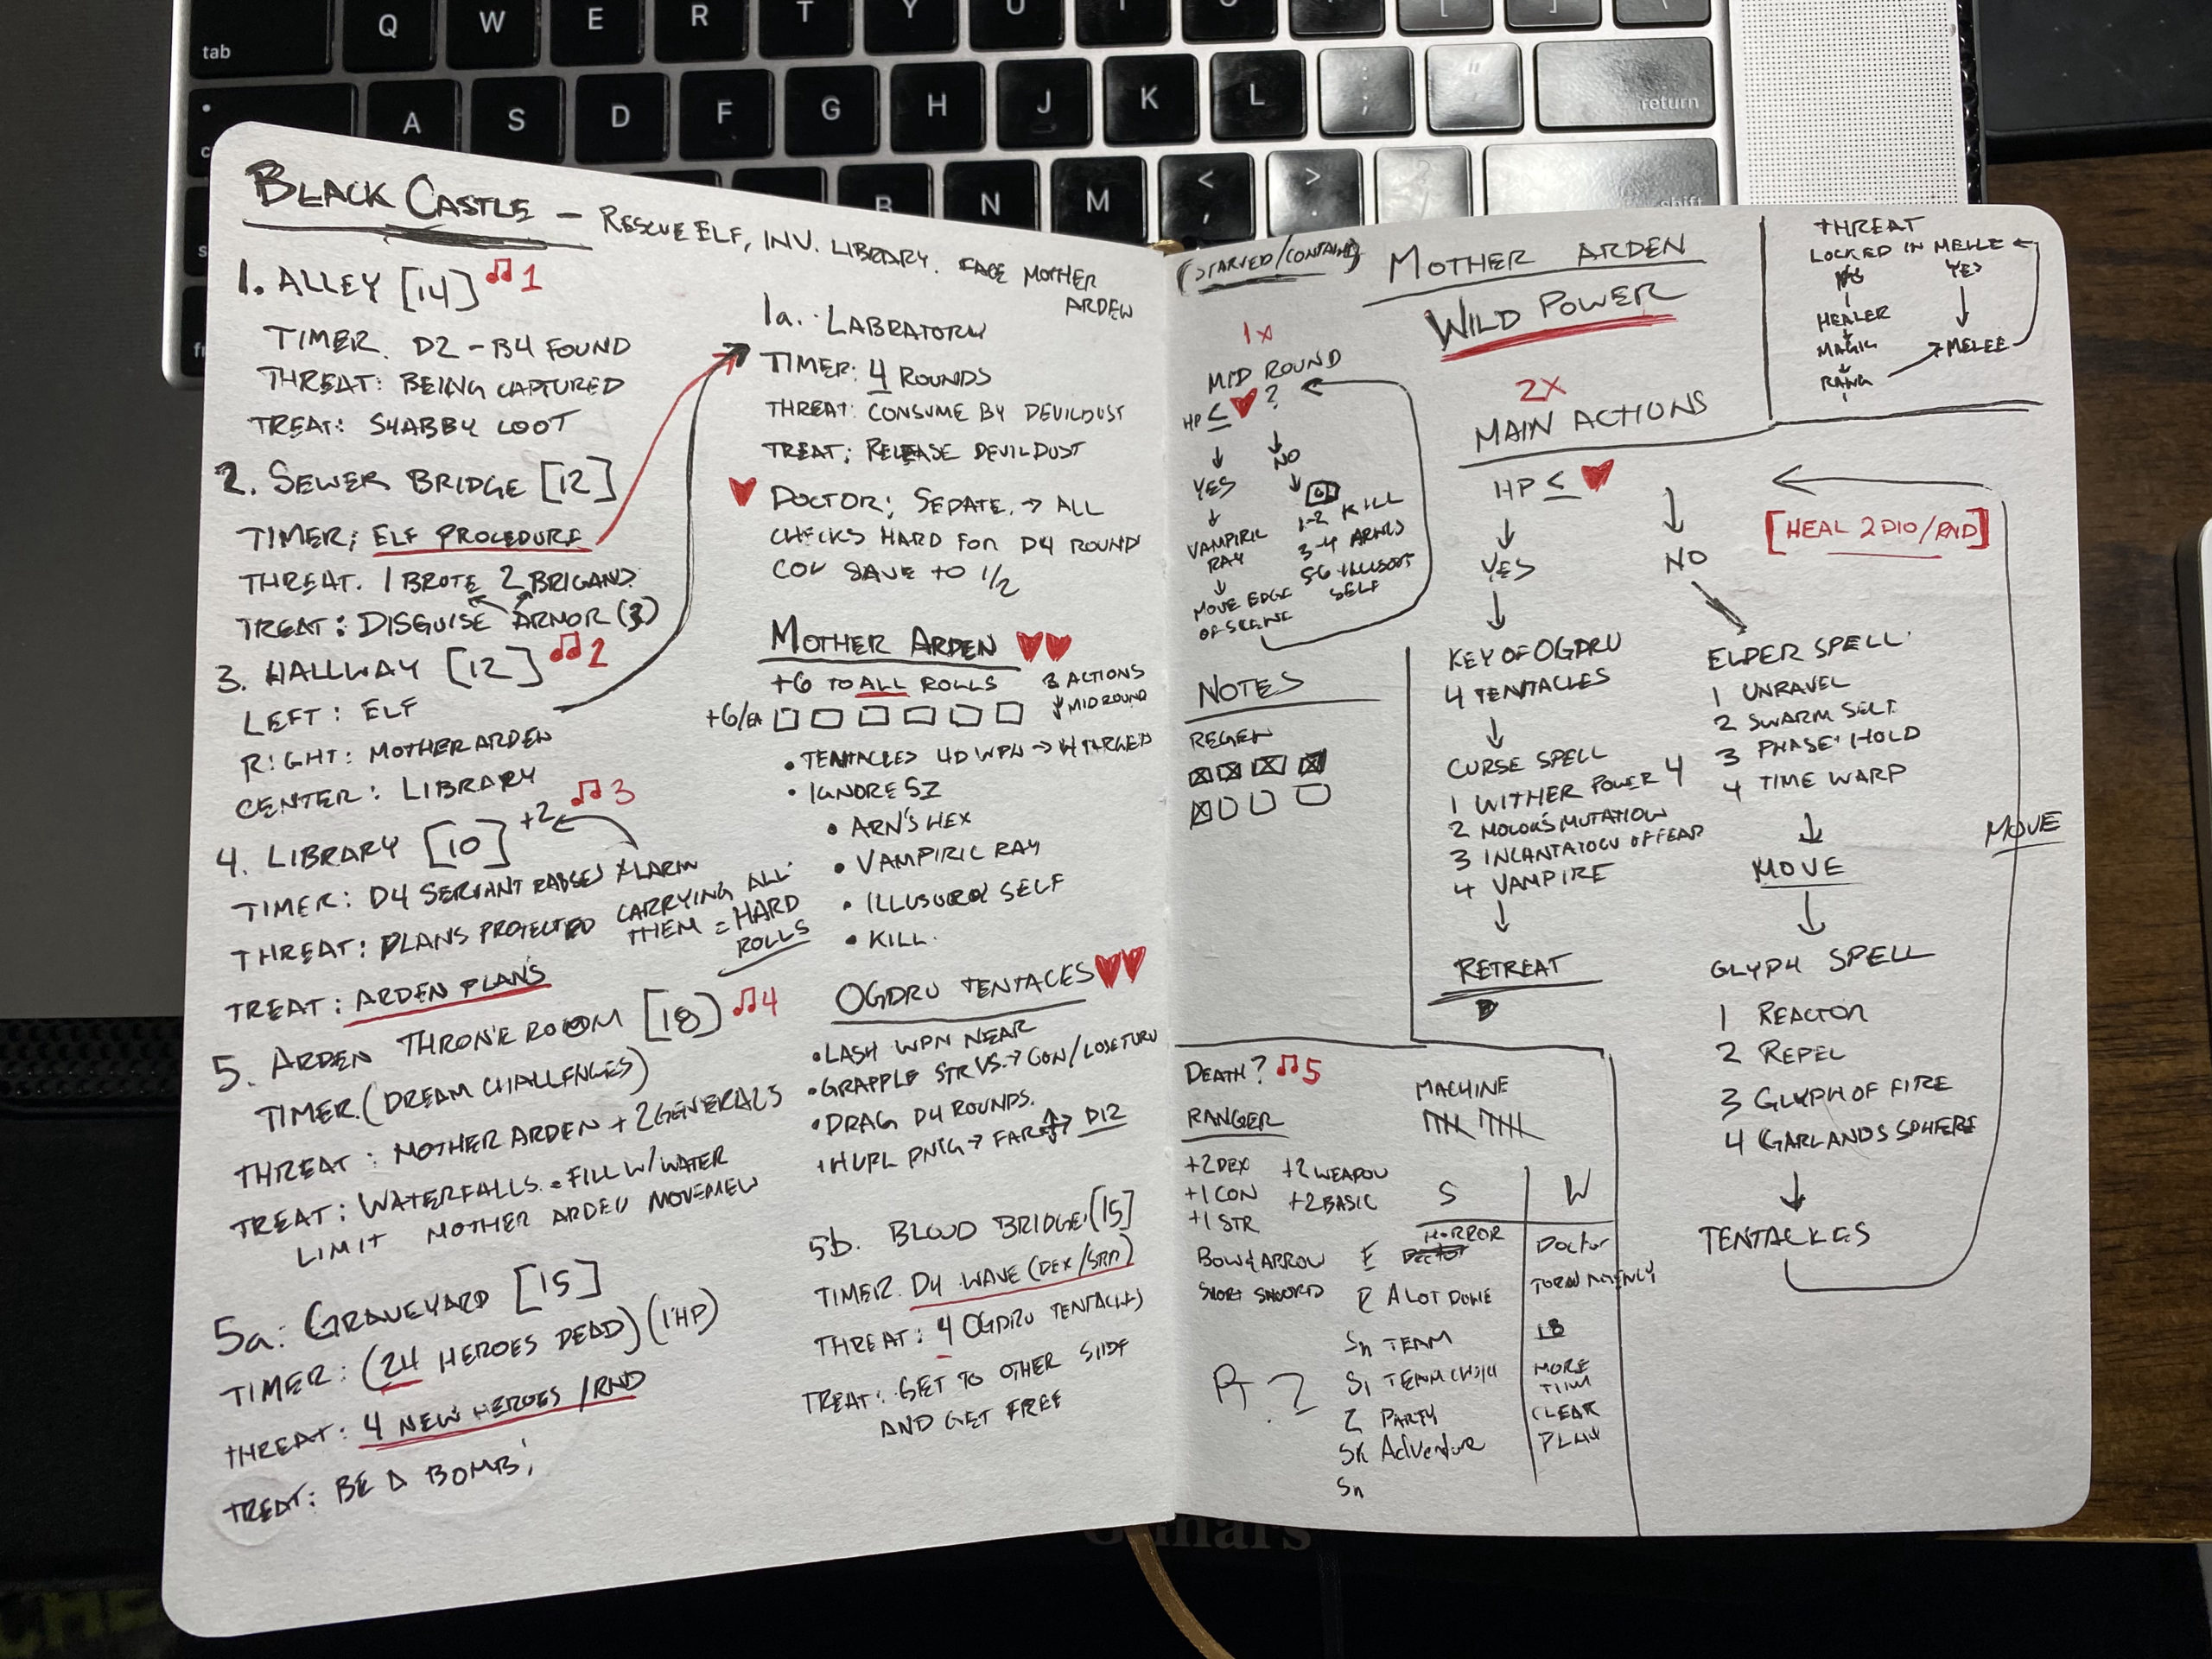 BLACK CASTLE – RESCUE ELF, INV. LIBRARY. FACE MOTHER ARDEN
1. ALLEY [14] ♫1
TIMER. D2 – B4 FOUND
THREAT: BEING CAPTURED
TREAT: SHABBY LOOT
2. SEWER BRIDGE [12]
TIMER; ELF PROCEDURE
THREAT. 1 BRUTE 2 BRIGAND.
TREAT: DISGUISE ARMOR (3)
3. HALLWAY [12] ♫2
LEFT: ELF
RIGHT: MOTHER ARDEN
CENTER: LIBRARY
4. LIBRARY [10] +2 ♫3
TIMER: D4 SERVANT RAISES ALARM
THREAT: PLANS PROTECTED CARRYING ALL
THEM = HARD
ROLLS
TREAT: ARDEN PLANS
5. ARDEN THRONE ROOM [18] ♫4
TIMER. (DREAM CHALLENGES)
THREAT: MOTHER ARDEN + 2 GENERALS
TREAT: WATERFALLS = FILL W/WATER
LIMIT MOTHER ARDEN MOVEMEN
5a: GRAVEYARD [15]
TIMER: (24 HEROES DEAD) (1HP)
THREAT: 4 NEW HEROES /RND
TREAT: BE A BOMB!
1a. LABRATORY
TIMER: 4 ROUNDS
THREAT: CONSUME BY DEVILDUST
TREAT; RELEASE DEVILDUST
♥ DOCTOR; SEDATE. → ALL
CHECKS HARD FOR D4 ROUND
CON SAVE TO 1/2
MOTHER ARDEN ♥♥
+6 TO ALL ROLLS
3 ACTIONS
↓ MID ROUND
+6/EA
• TENTACLES 4D WPN → 4 TARGETS
• IGNORE SZ
• ARN'S HEX
• VAMPIRIC RAY
• ILLUSORY SELF
• KILL.
OGDRU TENTACES ♥♥
• LASH WPN NEAR
• GRAPPLE STR VS. → CON/LOSE TURN
• DRAG D4 ROUNDS.
• HURL → FAR → D12
5b. BLOOD BRIDGE: [15]
TIMER. D4 WAVE (DEX/STR)
THREAT: 4 OGDRU TENTACLES
TREAT: GET TO OTHER SIDE
AND GET FREE
(STARVED/CONTAINED)
MOTHER ARDEN
WILD POWER
1x
MID ROUND
HP ≤ ♥ ?
↓
YES
↓
VAMPIRIC
RAY
↓
MOVE EDGE
OF SCENE
↓
NO
↓
1-2 KILL
3-4 ARN'S
5-6 ILLUSORY
SELF
2X
MAIN ACTIONS
HP ≤ ♥
↓
YES
↓
KEY OF OGDRU
4 TENTACLES
↓
CURSE SPELL
1 WITHER POWER 4
2 MOLOK'S MUTATION
3 INCANTATION OF FEAR
4 VAMPIRE
↓
RETREAT
↓
NO
ELDER SPELL
1 UNRAVEL
2 SWARM SELF
3 PHASE HOLD
4 TIME WARP
↓
MOVE
↓
GLYPH SPELL
1 REACTOR
2 REPEL
3 GLYPH OF FIRE
4 GARLANDS SPHERE
↓
TENTACKES
MOVE
[HEAL 2D10/RND]
THREAT
LOCKED IN MELLE
YES
↓
MELEE
HEALER
MAGIC
↓
RANG
NOTES
REGEN
DEATH? ♫5
RANGER
+2 DEX
+1 CON
+1 STR
+2 WEAPON
+2 BASIC
BOW & ARROW
SHORT SWORD
MACHINE
S
W
E HORROR
DOCTOR
R A LOT DONE
Sn TEAM
18
MORE
Z PARTY
CLEAR
Sn ADVENTURE
PLAY
Sn